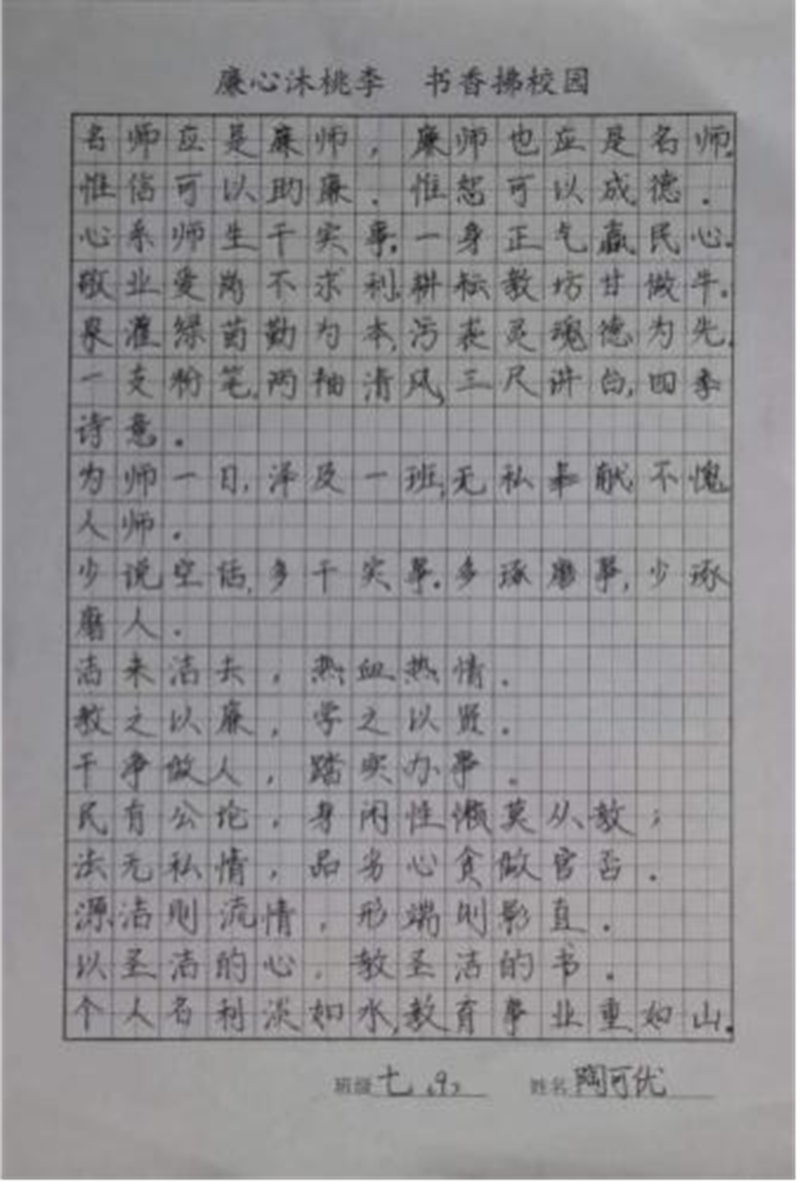 廉心沐桃李 书香拂校园
名师应是廉师，廉师也应是名师。
惟信可以助廉，惟恕可以成德。
心系师生干实事，一身正气赢民心。
敬业爱岗不求利，耕耘教坊甘做牛。
泉灌绿苗勤为本，污丧灵魂德为先。
一支粉笔，两袖清风，三尺讲台，四季
诗意。
为师一日，泽及一班，无私奉献，不愧
人师。
少说空话，多干实事。多琢磨事，少琢
磨人。
洁来洁去，热血热情。
教之以廉，学之以贤。
干净做人，踏实办事。
民有公论，身闲性懒莫从教；
法无私情，品劣心贪做官否。
源洁则流情，形端则影直。
以圣洁的心，教圣洁的书。
个人名利淡如水，教育事业重如山。
班级 七（9） 姓名 陶可优